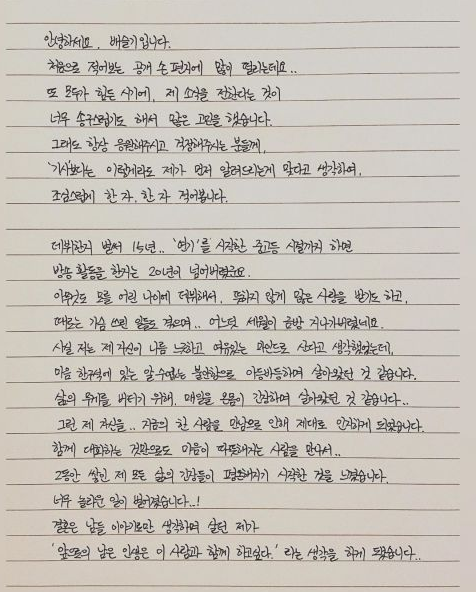 안녕하세요. 배슬기입니다.
처음으로 적어보는 공개 손 편지에 많이 떨리는데요..
또 모두가 힘든 시기에, 제 소식을 전한다는 것이
너무 송구스럽기도 해서 많은 고민을 했습니다.
그래도 항상 응원해주시고 걱정해주시는 분들께,
'기사보다는 이렇게라도 제가 먼저 알려드리는게 맞다고 생각하여,
조심스럽게 한 자, 한 자 적어봅니다.
데뷔한지 벌써 15년.. '연기'를 시작한 중고등 시절까지 하면
방송 활동을 한지는 20년이 넘어버렸군요.
아무것도 모를 어린 나이에 데뷔해서, 뜻하지 않게 많은 사랑을 받기도 하고,
때로는 가슴 쓰린 일들도 겪으며.. 어느덧 세월이 금방 지나가버렸네요.
사실 저는 제 자신이 나름 느긋하고 여유있는 마인드로 산다고 생각했었는데,
마음 한구석에 있는 알 수 없는 불안함으로 아등바등하며 살아왔던 것 같습니다.
삶의 무게를 버티기 위해, 매일을 온몸이 긴장하며 살아왔던 것 같습니다..
그런 제 자신을.. 지금의 한 사람을 만남으로 인해 제대로 인지하게 되었습니다.
함께 대화하는 것만으로도 마음이 따뜻해지는 사람을 만나서..
그동안 쌓인 제 모든 삶의 긴장들이 평온해지기 시작한 것을 느꼈습니다.
너무 놀라운 일이 벌어졌습니다..!
결혼은 남들 이야기로만 생각하며 살던 제가
'앞으로의 남은 인생은 이 사람과 함께 하고싶다.' 라는 생각을 하게 됐습니다..